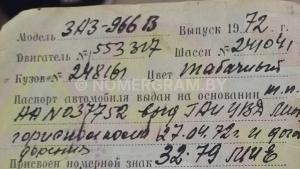 Модель ЗАЗ-966 В Выпуск 1972 г.
Двигатель № 553327 Шасси № 241041
Кузов № 248161 Цвет Табачный
Паспорт автомобиля выдан на основании т.п.
АА №037752 выд ГАИ УВД
27.04.72г и
Присвоен номерной знак 32-79
NOMERGRAM.BY